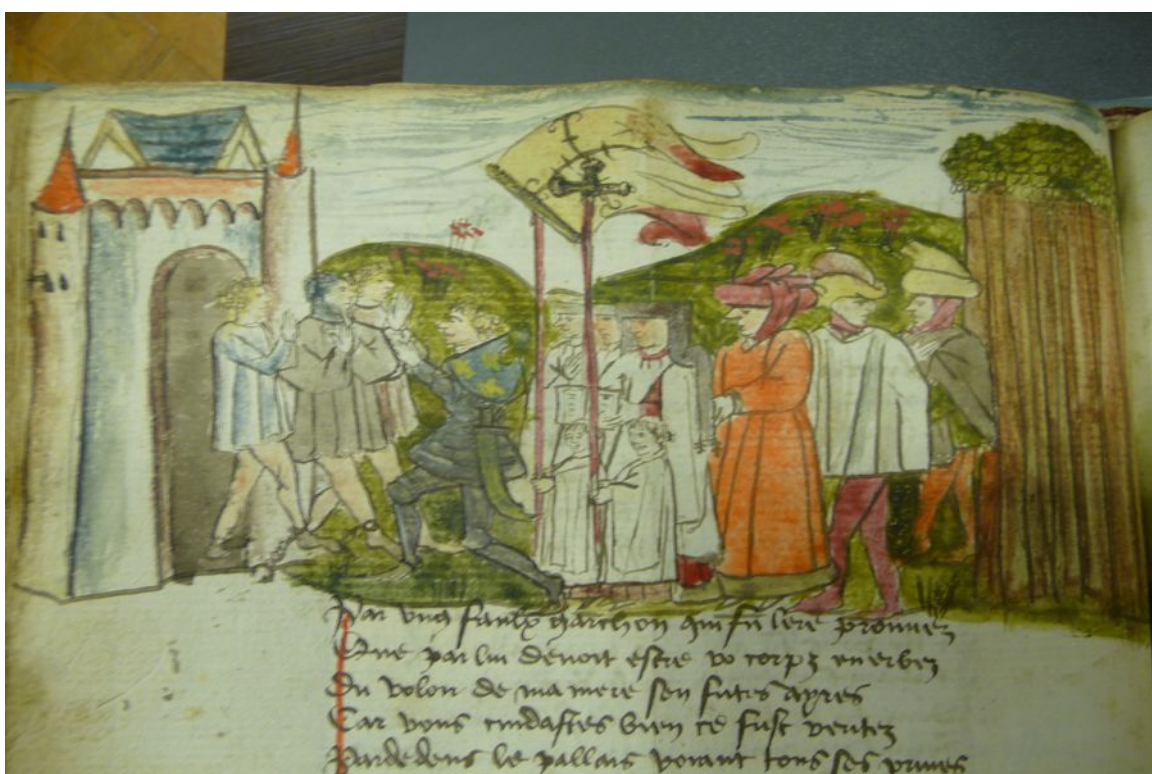 Par ung faulx garchon qui fu lere prouuez
Que par lui deuoit estre vo corpz enerbez
Du volon de ma mere sen futes ayres
Car vous cuidastes bien ce fust veritez
Pardedens le pallais voiant tous ses priues